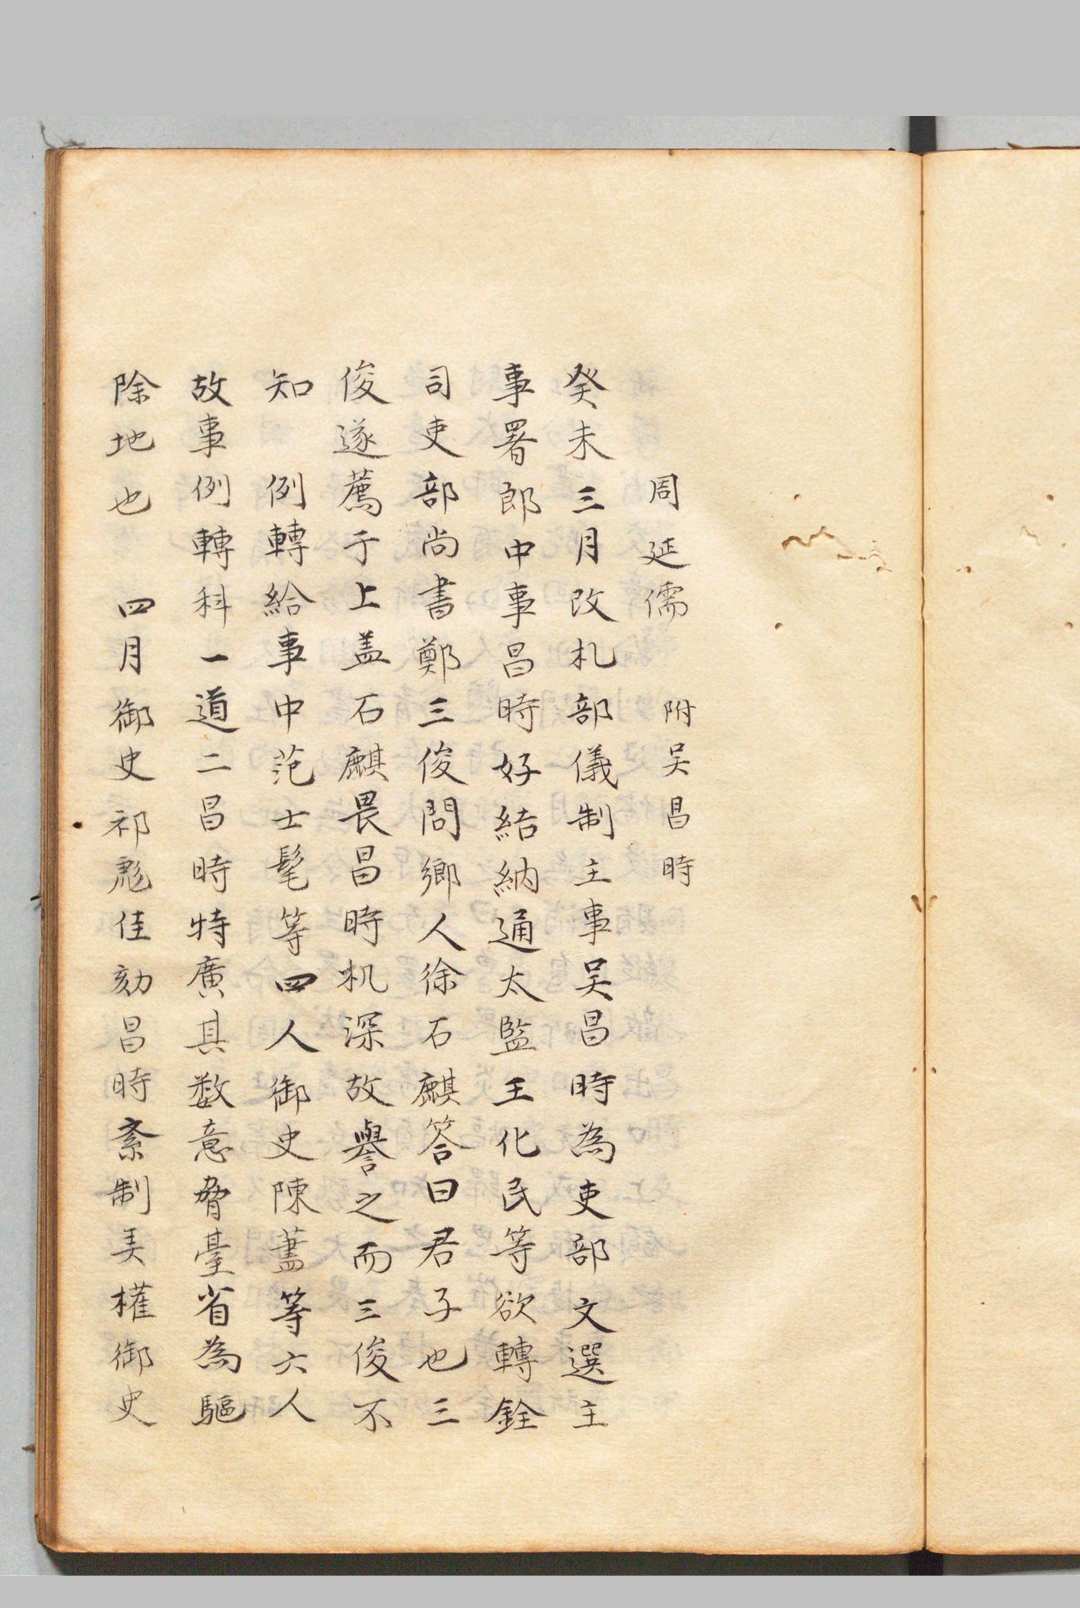 周延儒 附吴昌時
癸未三月改礼部儀制主事吴昌時為吏部文選主
事署郎中事昌時好結納通太監王化民等欲轉銓
司吏部尚書鄭三俊問鄉人徐石麒答曰君子也三
俊遂薦于上盖石麒畏昌時机深故譽之而三俊不
知 例轉給事中范士髦等四人御史陳藎等六人
故事例轉科一道二昌時特廣其数意脅臺省為驅
除地也 四月御史祁彪佳劾昌時紊制美權御史